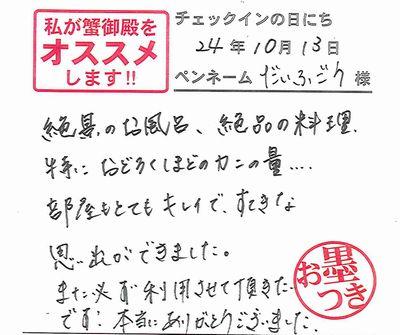 私が蟹御殿を
オススメ
します!!
チェックインの日にち
24年10月13日
ペンネーム だいふごり 様
絶景のお風呂、絶品の料理、
特におどろくほどのカニの量....
部屋もとてもキレイで、すてきな
思い出ができました。
また必ず利用させて頂きたい
です! 本当にありがとうございました。
お墨つき